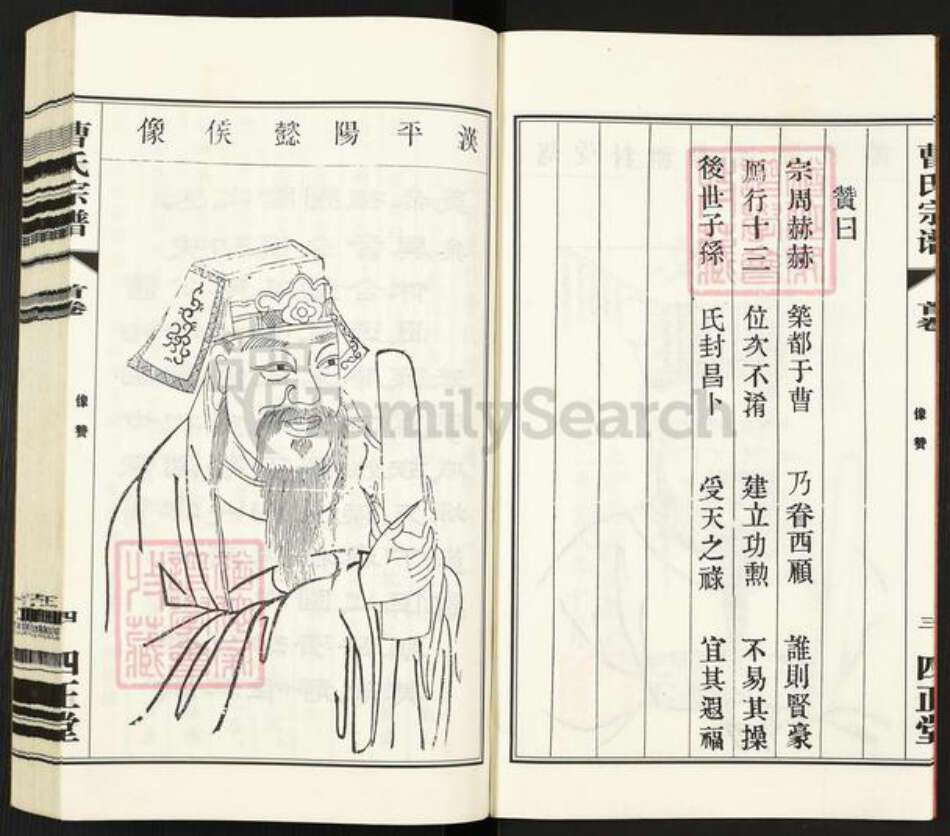 曹氏宗谱
首卷
像赞
三
四正堂
贊曰
宗周赫赫 築都于曹 乃眷西顧 誰則賢豪
鴈行十三 位次不淆 建立功勲 不易其操
後世子孫 氏封昌卜 受天之祿 宜其遐福
漢平陽懿侯像
曹氏宗譜
首卷
像赞
四
四正堂
FamilySearch